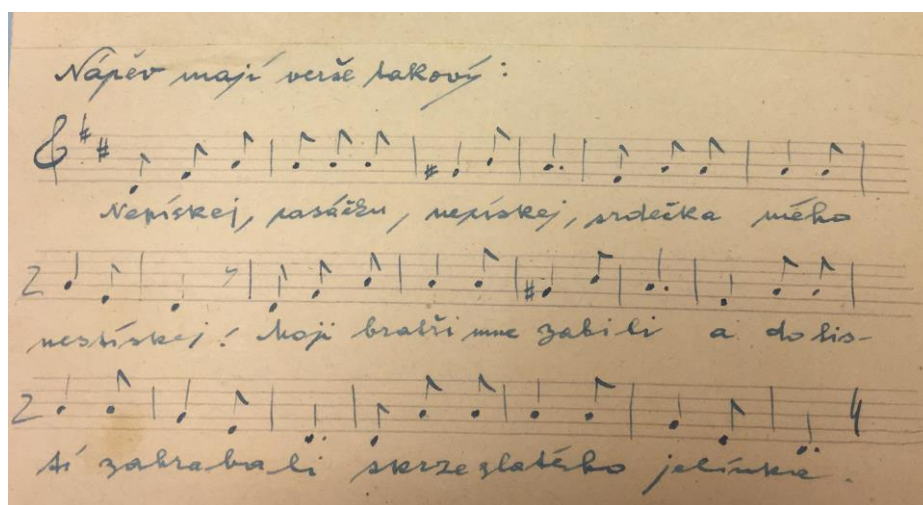 Nápěv mají verše takový:
Nepískej, pasáčku, nepískej, srdečka mého
nestískej! Moji bratři mne zabili a do lis-
tí zahrabali skrze zlatého jelínka.